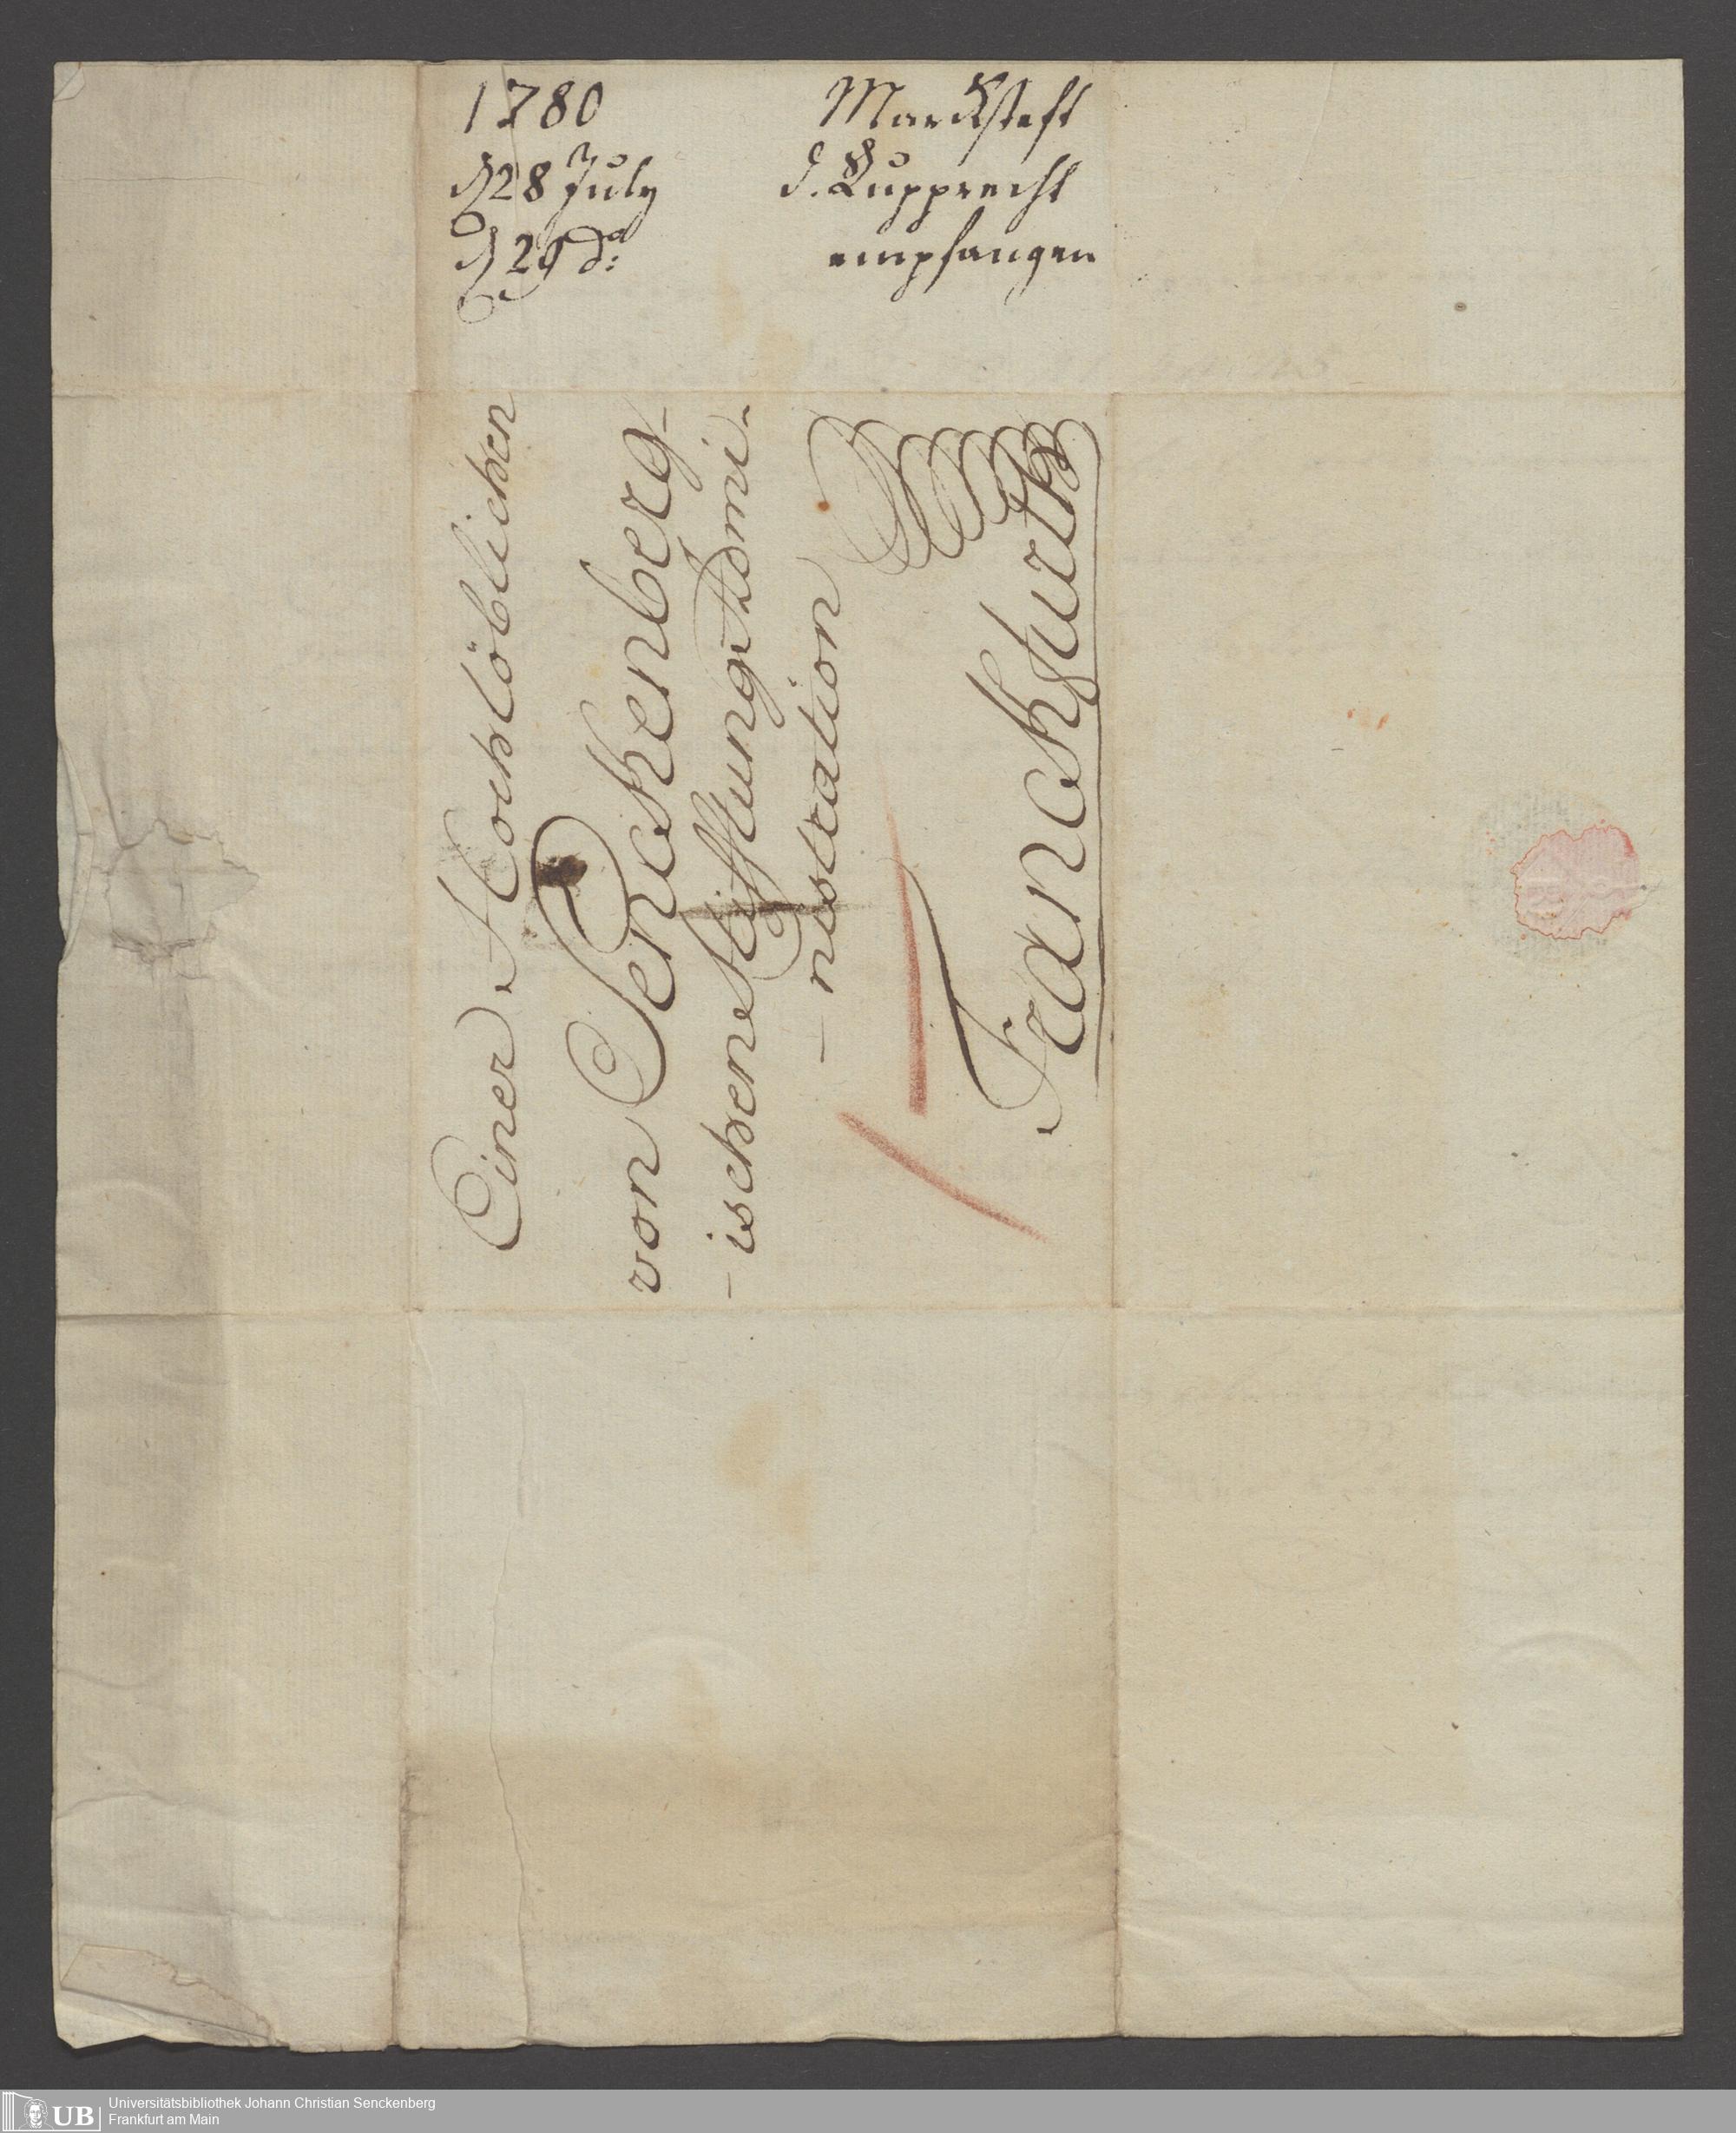 1780 Marcksteft
d 28 July J. Rupprecht
d 29 do: empfangen
Einer Hochlöblichen
von Senckenberg-
-ischen Stifftungs Admi-
-nistration
Franckfurth
UB
Universitätsbibliothek Johann Christian Senckenberg
Frankfurt am Main